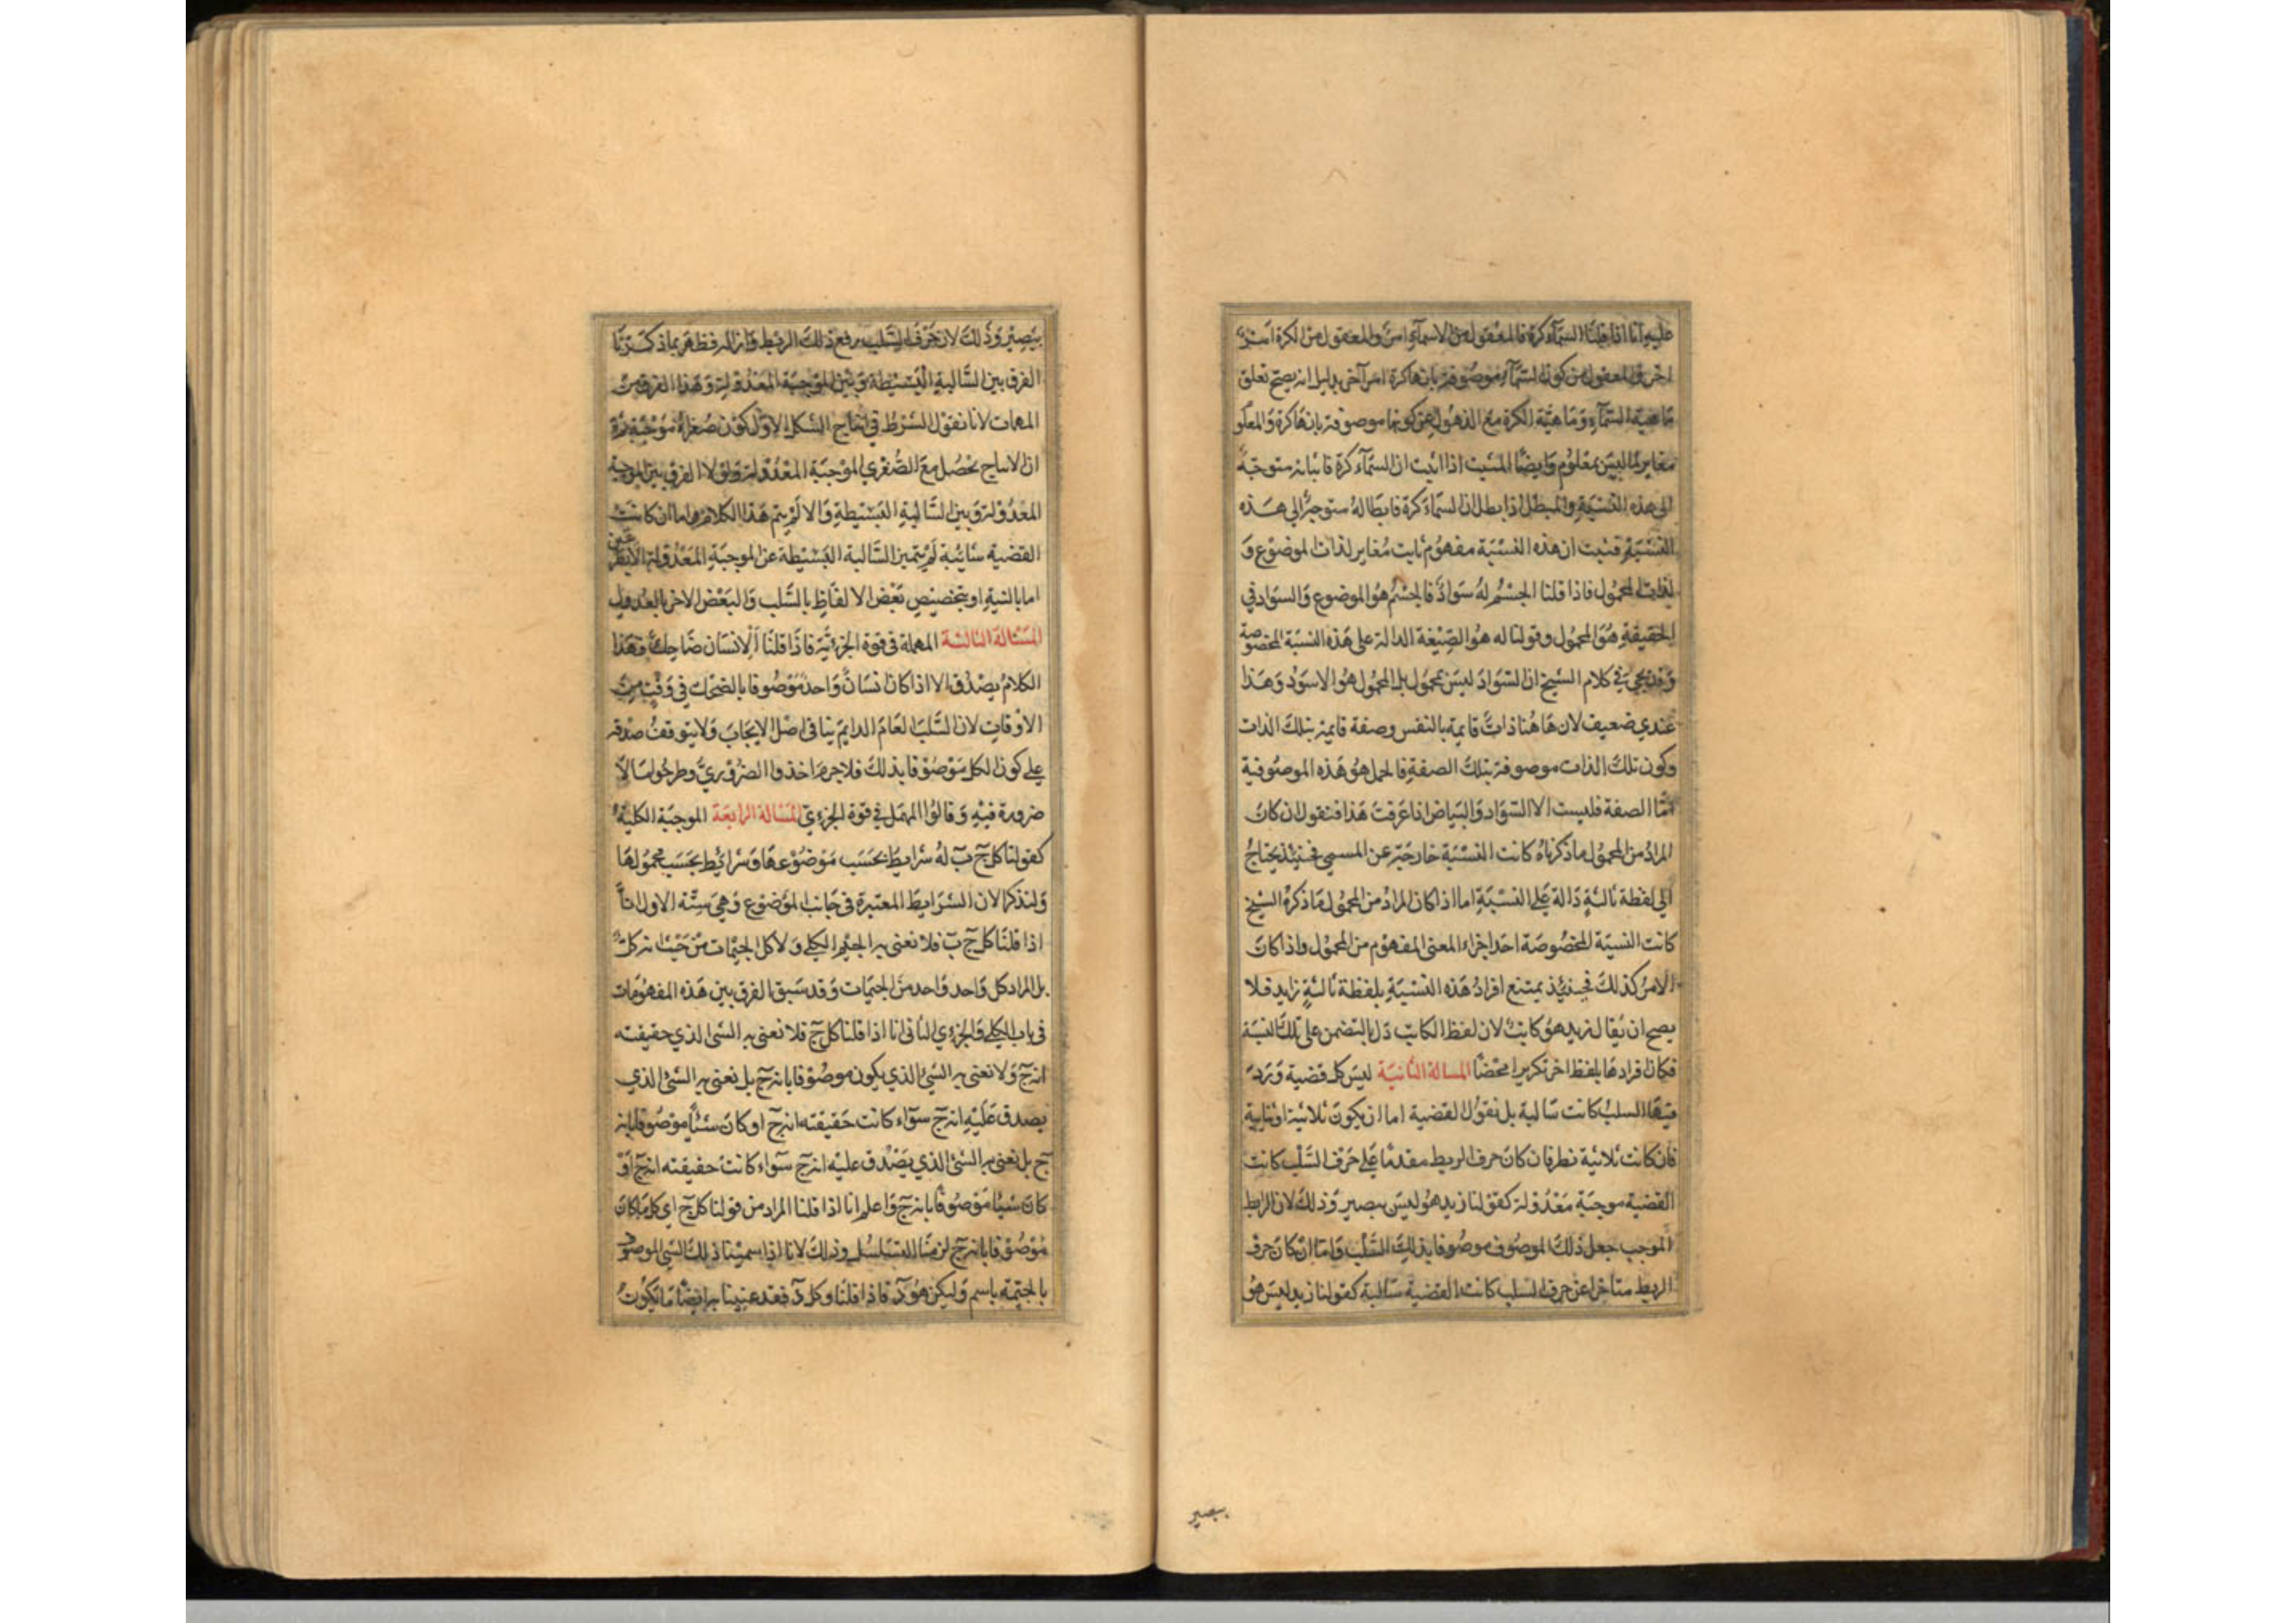 عليه انا اذا قلنا السمآء كرة فالمعقول من الاسمآء امر والمعقول من الكرة امر
اخر والمعقول من كون السمآء موصوفة بانها كرة امر آخر بدليل انه يصح تعلق
ماهية السمآء وماهية الكرة مع الذهول عن كونها موصوفة بانها كرة والمعلو
مغاير لما ليس بمعلوم وايضا المثبت اذا اثبت ان السمآء كرة فاثباته متوجه
الى هذه النسبة والمبطل اذا بطل ان السماء كرة فابطاله متوجه الى هذه
النسبة فثبت ان هذه النسبة مفهوم ثابت مغاير لذات الموضوع و
لذات المحمول فاذا قلنا الجسم له سواد فالجسم هو الموضوع والسواد في
الحقيقة هو المحمول وقولنا له هو الصيغة الدالة على هذه النسبة المخصوصة
وقد يجئ في كلام الشيخ ان السواد ليس بمحمول بل المحمول هو الاسود وهذا
عندي ضعيف لان هاهنا ذات قايمة بالنفس وصفة قايمة بتلك الذات
وكون تلك الذات موصوفة بتلك الصفة فالحمل هو هذه الموصوفية
امّا الصفة فليست الا السواد والبياض اذا عرفت هذا فنقول ان كان
المراد من المحمول ما ذكرناه كانت النسبة خارجة عن المسمى فحينئذ يحتاج
الى لفظة ثالثة دالة على النسبة اما اذا كان المراد من المحمول ما ذكره الشيخ
كانت النسبة المخصوصة احد اجزاء المعنى المفهوم من المحمول واذا كان
الامر كذلك فحينئذ يمتنع افراد هذه النسبة بلفظة ثالثة زايد فلا
يصح ان يقال زيد هو كاتب لان لفظ الكاتب دل بالتضمن على تلك النسبة
فكان افرادها بلفظ اخر تكريرا محضا المسالة الثانية ليس كل قضية ورد
فيها السلب كانت سالبة بل نقول القضية اما ان يكون ثلاثية او ثنايية
فان كانت ثلاثية نظر فان كان حرف الربط مقدما على حرف السلب كانت
القضية موجبة معدولة كقولنا زيد هو ليس ببصير وذلك لان الرابط
الموجب جعل ذلك الموصوف موصوفا بذلك السلب واما ان كان حرف
الربط متاخرا عن حرف السلب كانت القضية سالبة كقولنا زيد ليس هو
ببصير
ببصير وذلك لان حرف السلب يرفع ذلك الربط فظهر بما ذكرنا
الفرق بين السالبة البسيطة وبين الموجبة المعدولة وهذا الفرق من
المهمات لانا نقول الشرط في انتاج الشكل الاول كون صغراه موجبة
ان الانتاج يحصل مع الصغرى الموجبة المعدولة ولولا الفرق بين الموجبة
المعدولة وبين السالبة البسيطة والا لم يتم هذا الكلام واما ان كانت
القضية ثنائية لم يتميز السالبة البسيطة عن الموجبة المعدولة الا
اما بالنية او بتخصيص بعض الالفاظ بالسلب والبعض الاخر بالعدول
المسئالة الثالثة المهملة في قوة الجزئية فاذا قلنا الانسان ضاحك فهذا
الكلام يصدق الا اذا كان انسان واحد موصوفا بالضحك في وقت من
الاوقات لان السلب العام الدايم ينافى اصل الايجاب ولا يتوقف صدقه
على كون الكل موصوفا بذلك فلا جرم اخذوا الضروري وطرحوا ما لا
ضرورة فيه وقالوا المهمل في قوة الجزءي المسالة الرابعة الموجبة الكلية
كقولنا كل ج ب له شرايط بحسب موضوعها وشرائط بحسب محمولها
ولنذكر الان الشرايط المعتبرة في جانب الموضوع وهي ستة الاول انا
اذا قلنا كل ج ب فلا نعنى به الجيم الكلي ولا كل الجيمات من حيث انه كل
بل المراد كل واحد واحد من الجيمات وقد سبق الفرق بين هذه المفهومات
في باب الكلي والجزءي الثانى انا اذا قلنا كل ج فلا نعنى به الشئ الذي حقيقته
انه ج ولا نعنى به الشئ الذي يكون موصوفا بانه ج بل نعنى به الشئ الذي
يصدق عليه انه ج سوآء كانت حقيقته انه ج او كان شئا موصوفا بانه
ج بل نعنى به الشئ الذي يصدق عليه انه ج سوآء كانت حقيقته انه ج او
كان شيئا موصوفا بانه ج واعلم انا اذا قلنا المراد من قولنا كل ج اى كل ما كان
موصوفا بانه ج لزمنا التسلسل وذلك لانا اذا سمينا ذلك الشى الموصوف
بالجيمية باسم وليكن هو د فاذا قلنا وكل د فقد عنينا به ايضا ما يكون